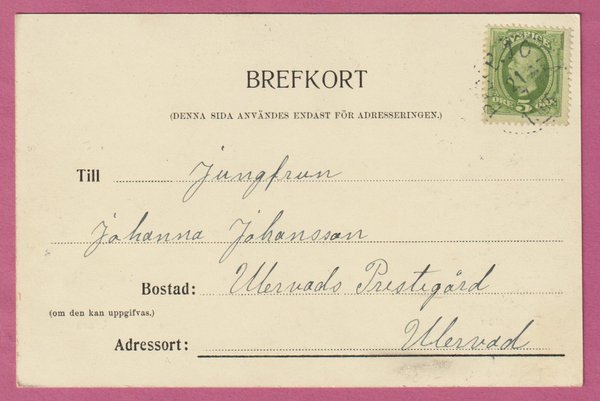 SVERIGE
ÖRE 5 ÖRE
BREFKORT
(DENNA SIDA ANVÄNDES ENDAST FÖR ADRESSERINGEN.)
Till Jungfrun
Johanna Johansson
Bostad: Ulervads Prestegård
(om den kan uppgifvas.)
Adressort: Ulervad